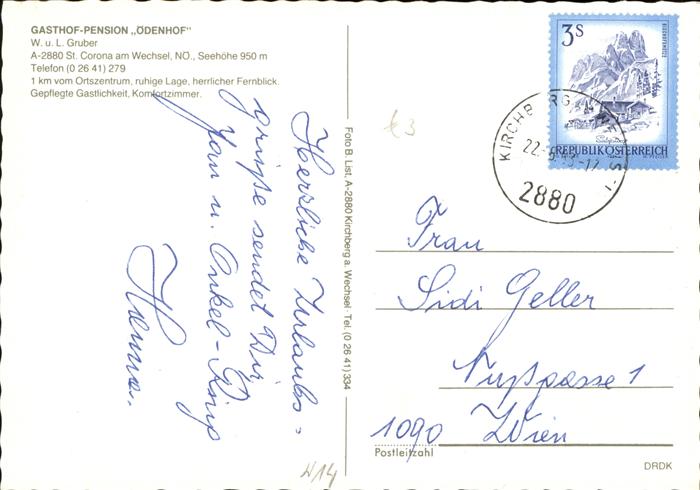 GASTHOF-PENSION „ÖDENHOF"
W. u. L. Gruber
A-2880 St. Corona am Wechsel, NÖ., Seehöhe 950 m
Telefon (0 26 41) 279
1 km vom Ortszentrum, ruhige Lage, herrlicher Fernblick.
Gepflegte Gastlichkeit, Komfortzimmer.
Herzliche Urlaubs=
grüße sendet Dir
u. Onkel-
Foto B. List, A-2880 Kirchberg a. Wechsel · Tel. (0 26 41) 334
W14
€3
3S
REPUBLIK ÖSTERREICH
KIRCHBERG
2880
Frau
Sidi Geller
Nußgasse 1
1090 Wien
Postleitzahl
DRDK